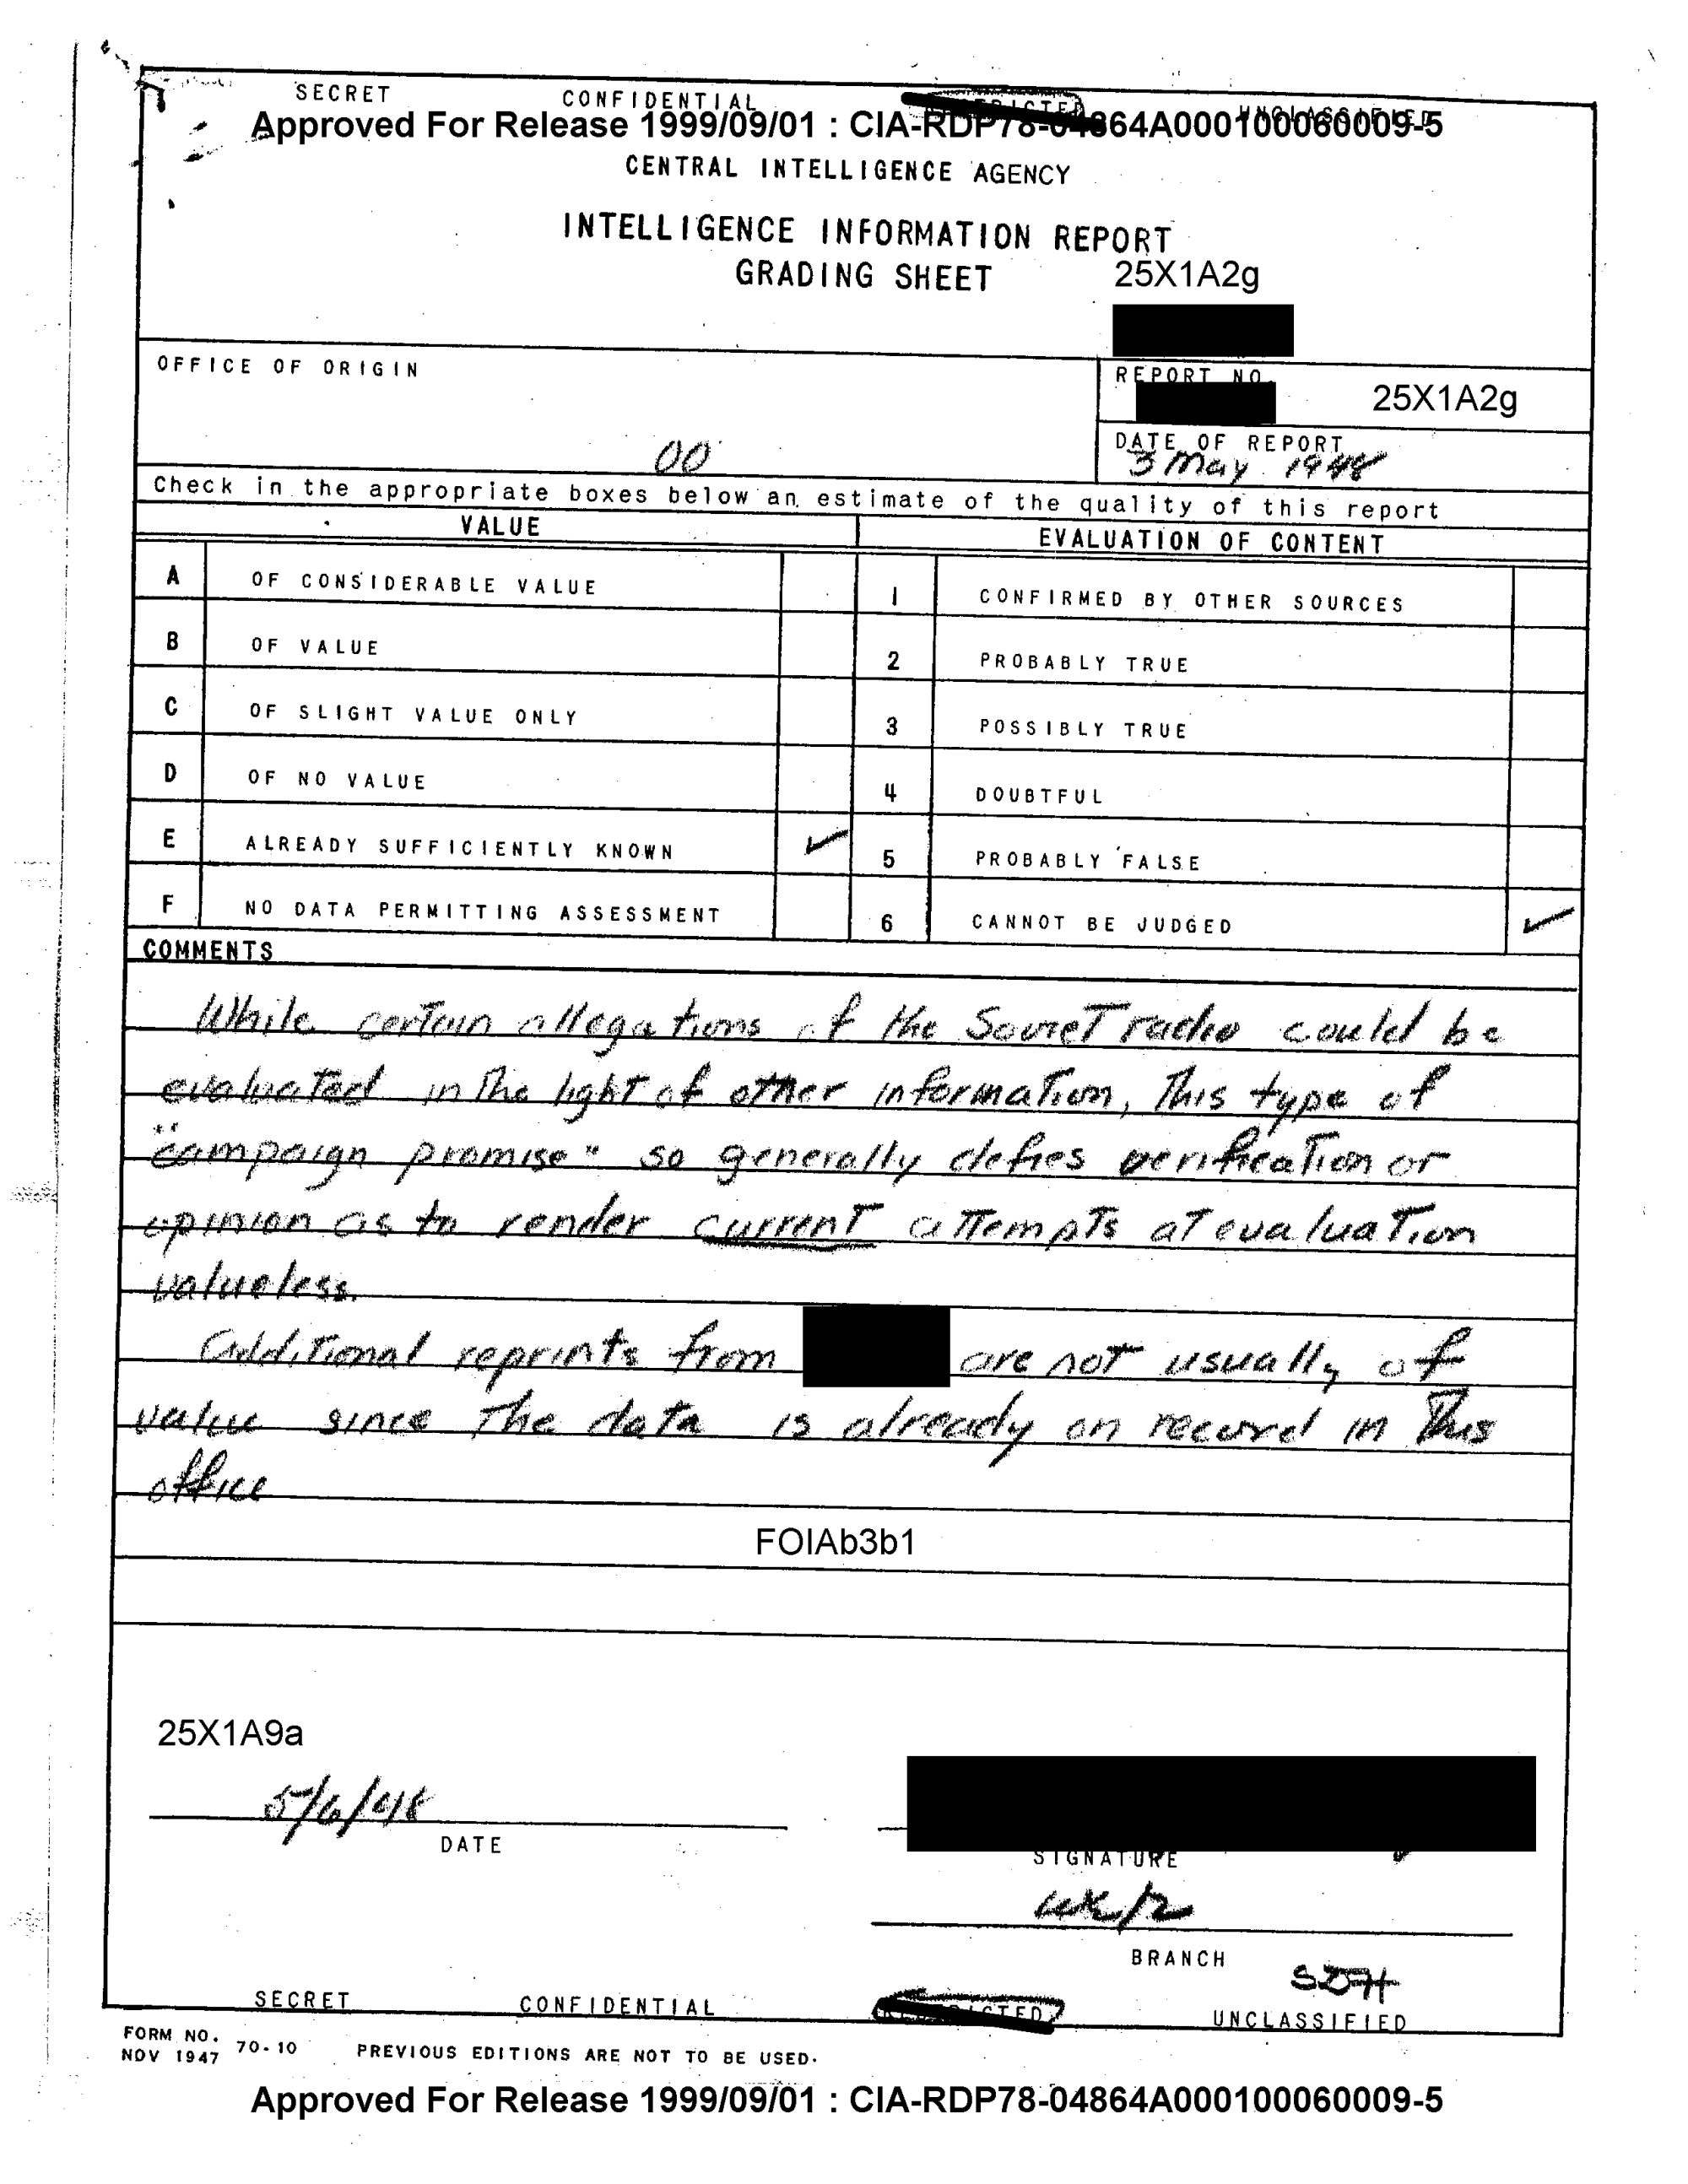 SECRET CONFIDENTIAL RESTRICTED UNCLASSIFIED
Approved For Release 1999/09/01 : CIA-RDP78-04864A000100060009-5
CENTRAL INTELLIGENCE AGENCY
INTELLIGENCE INFORMATION REPORT
GRADING SHEET
25X1A2g
OFFICE OF ORIGIN
00
REPORT NO.
25X1A2g
DATE OF REPORT
3 May 1948
Check in the appropriate boxes below an estimate of the quality of this report
VALUE EVALUATION OF CONTENT
A OF CONSIDERABLE VALUE 1 CONFIRMED BY OTHER SOURCES
B OF VALUE 2 PROBABLY TRUE
C OF SLIGHT VALUE ONLY 3 POSSIBLY TRUE
D OF NO VALUE 4 DOUBTFUL
E ALREADY SUFFICIENTLY KNOWN ✓ 5 PROBABLY FALSE
F NO DATA PERMITTING ASSESSMENT 6 CANNOT BE JUDGED ✓
COMMENTS
While certain allegations of the Soviet radio could be
evaluated in the light of other information, this type of
"campaign promise" so generally defies verification or
opinion as to render current attempts at evaluation
valueless.
Additional reprints from are not usually of
value since the data is already on record in this
office
FOIAb3b1
25X1A9a
5/6/48
DATE
SIGNATURE
BRANCH
SECRET CONFIDENTIAL RESTRICTED UNCLASSIFIED
FORM NO. 70-10 PREVIOUS EDITIONS ARE NOT TO BE USED.
NOV 1947
Approved For Release 1999/09/01 : CIA-RDP78-04864A000100060009-5